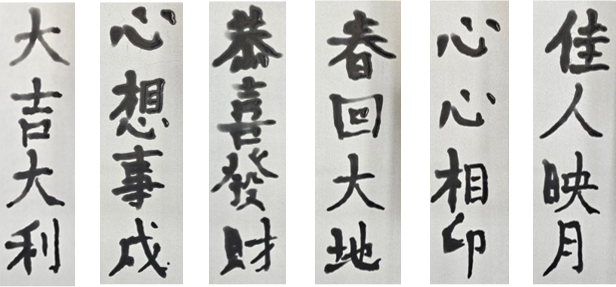 佳人映月
心心相印
春回大地
恭喜發財
心想事成
大吉大利